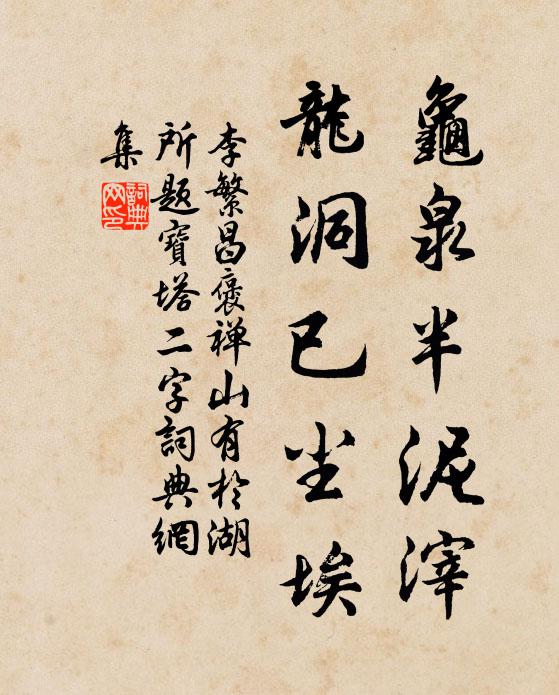 龜泉半泥滓
龍洞已尘埃
李繁昌褒禅山有於湖
所题寶塔二字詞典網
集
詞典网印